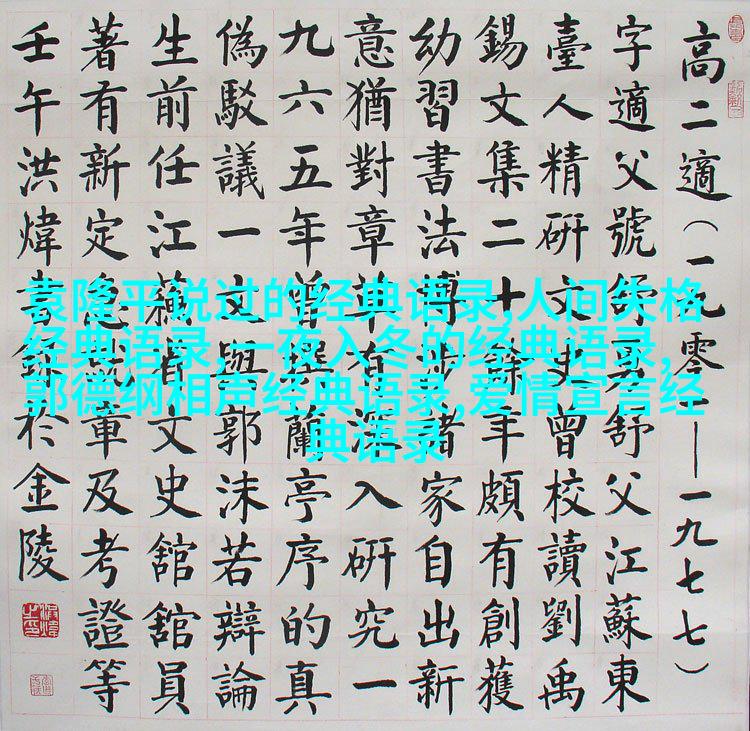 高二適（一九零——一九七七）
字適父號舒舒父江蘇東
臺人精研文史曾校讀劉禹
錫文集二十餘年頗有創獲
幼習書法博涉諸家自出新
意猶對章草有深入研究一
九六五年曾撰蘭亭序的真
偽駁議一文與郭沫若辯論
生前任江蘇省文史館館員
著有新定急就章及考證等
壬午洪煒書錄於金陵
袁隆平说过的经典语录,人间失格
经典语录,一夜入冬的经典语录,
郭德纲相声经典语录,爱情宣言经
典语录